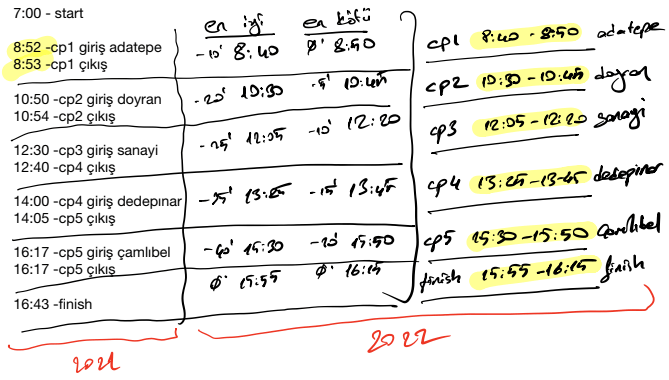 7:00 - start
en iyi en kötü
8:52 -cp1 giriş adatepe -10' 8:40 0' 8:50 cp1 8:40 - 8:50 adatepe
8:53 -cp1 çıkış
10:50 -cp2 giriş doyran -20' 10:30 -5' 10:45 cp2 10:30 - 10:45 doyran
10:54 -cp2 çıkış
12:30 -cp3 giriş sanayi -25' 12:05 -10' 12:20 cp3 12:05 - 12:20 sanayi
12:40 -cp4 çıkış
14:00 -cp4 giriş dedepınar -35' 13:25 -15' 13:45 cp4 13:25 - 13:45 dedepınar
14:05 -cp5 çıkış
16:17 -cp5 giriş çamlıbel -40' 15:30 -20' 15:50 cp5 15:30 - 15:50 çamlıbel
16:17 -cp5 çıkış 0' 15:55 0' 16:15 finish 15:55 - 16:15 finish
16:43 -finish
2021 2022